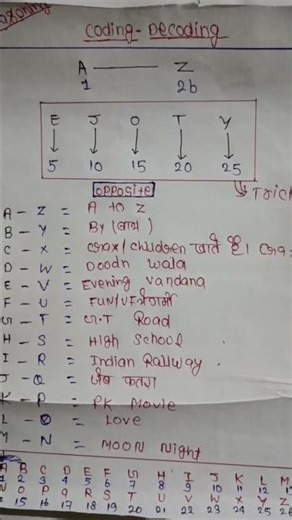 Reasoning
Coding - Decoding
A — Z
1 26
E J O T Y
↓ ↓ ↓ ↓ ↓
5 10 15 20 25
OPPOSITE Trick
A - Z = A to Z
B - Y = By (बाय)
C - X = crax/children खाते है। cra
D - W = Doodh wala
E - V = Evening vandana
F - U = FUN/UF
G - T = G.T Road
H - S = High School
I - R = Indian Railway.
J - Q = जैक
K - P = PK Movie
L - O = Love
M - N = MOON Night
A B C D E F G H I J K L M
1 2 3 4 5 6 7 8 9 10 11 12 13
N O P Q R S T U V W X Y Z
15 16 17 18 19 20 21 22 23 24 25 26